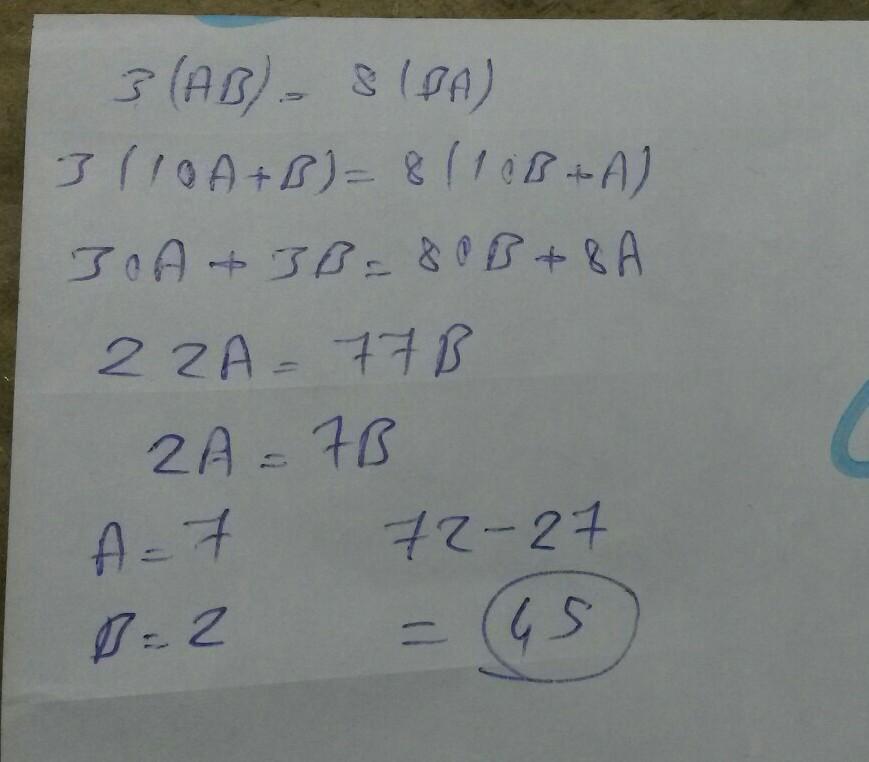 3(AB) = 8(BA)
3(10A+B) = 8(10B+A)
30A + 3B = 80B + 8A
22A = 77B
2A = 7B
A = 7 72-27
B = 2 = 45